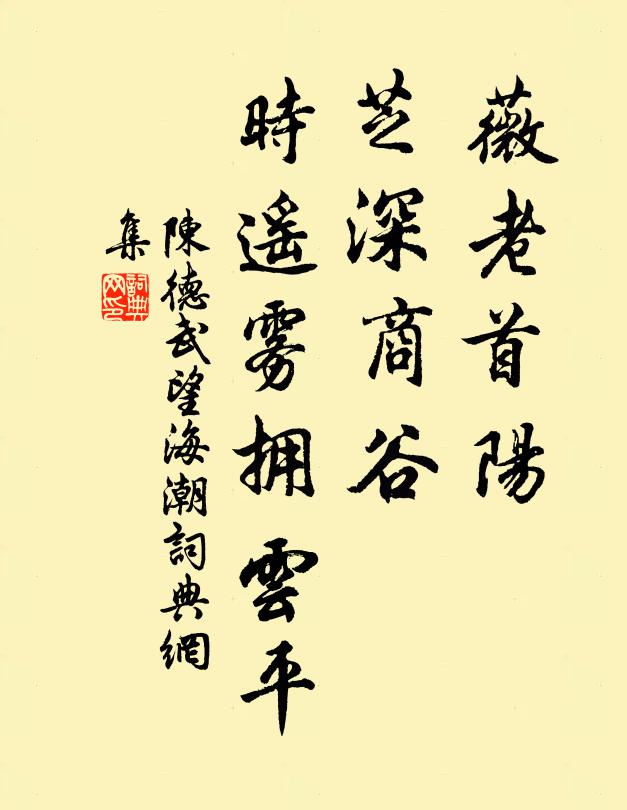 薇老首陽
芝深商谷
時遥雾拥雲平
陳德武望海潮詞典網
集
詞典
网印